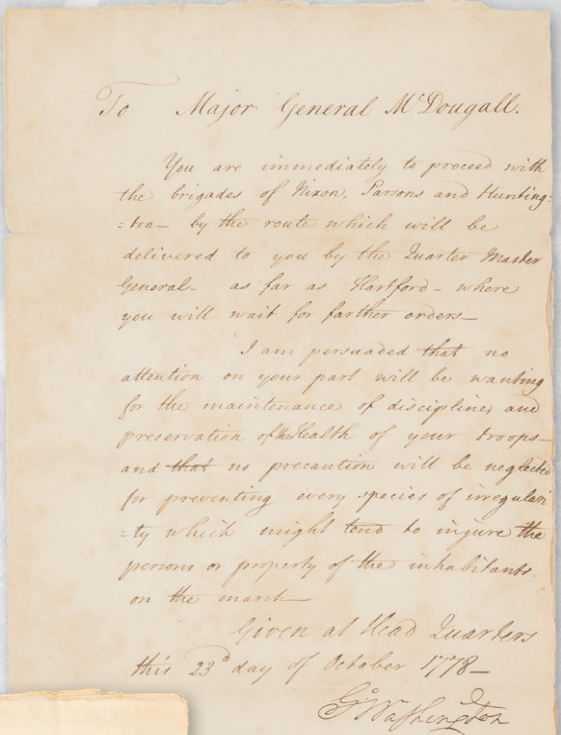 To Major General McDougall.
You are immediately to proceed with
the brigades of Nixon, Parsons and Hunting=
=ton— by the route which will be
delivered to you by the Quarter Master
General— as far as Hartford— where
you will wait for farther orders—
I am persuaded that no
attention on your part will be wanting
for the maintenance of discipline, and
preservation of the Health of your troops—
and that no precaution will be neglected
for preventing every species of irregulari
=ty which might tend to injure the
persons or property of the inhabitants.
on the march—
Given at Head Quarters
this 23d day of October 1778—
Go Washington